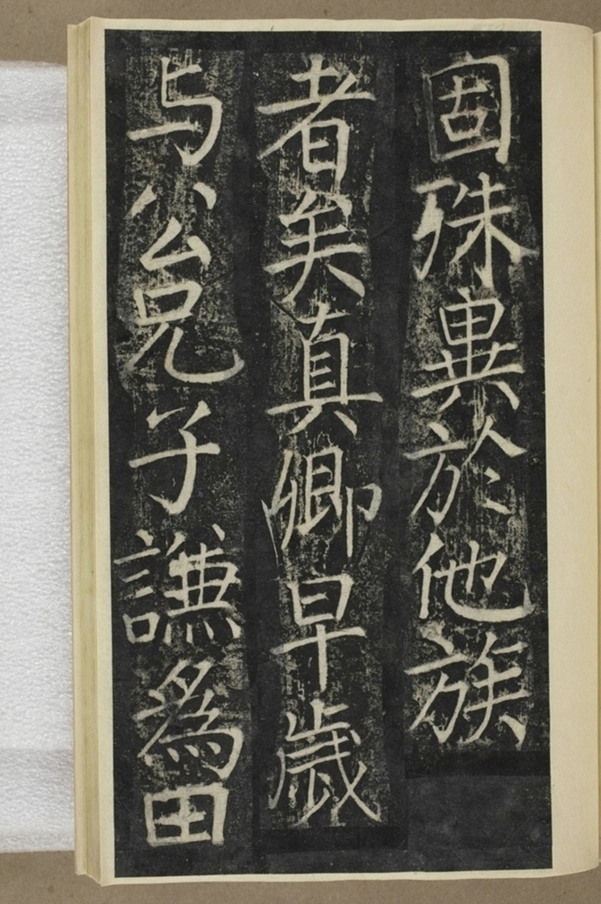 固殊異於他族
者矣真卿早歲
与公兄子謙為田